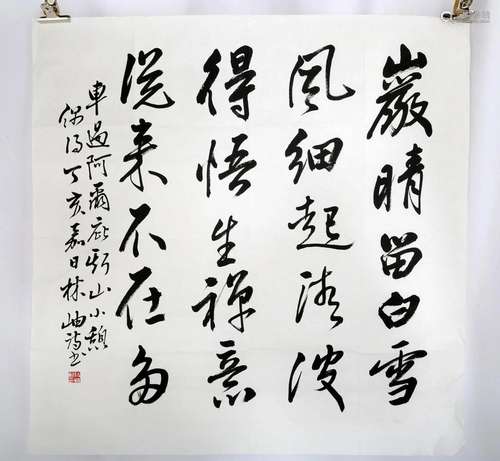 巖晴留白雪
風細起清波
得悟生禪意
说来不在多
車過阿爾卑斯山小憩
偶得丁亥嘉日林岫詩书